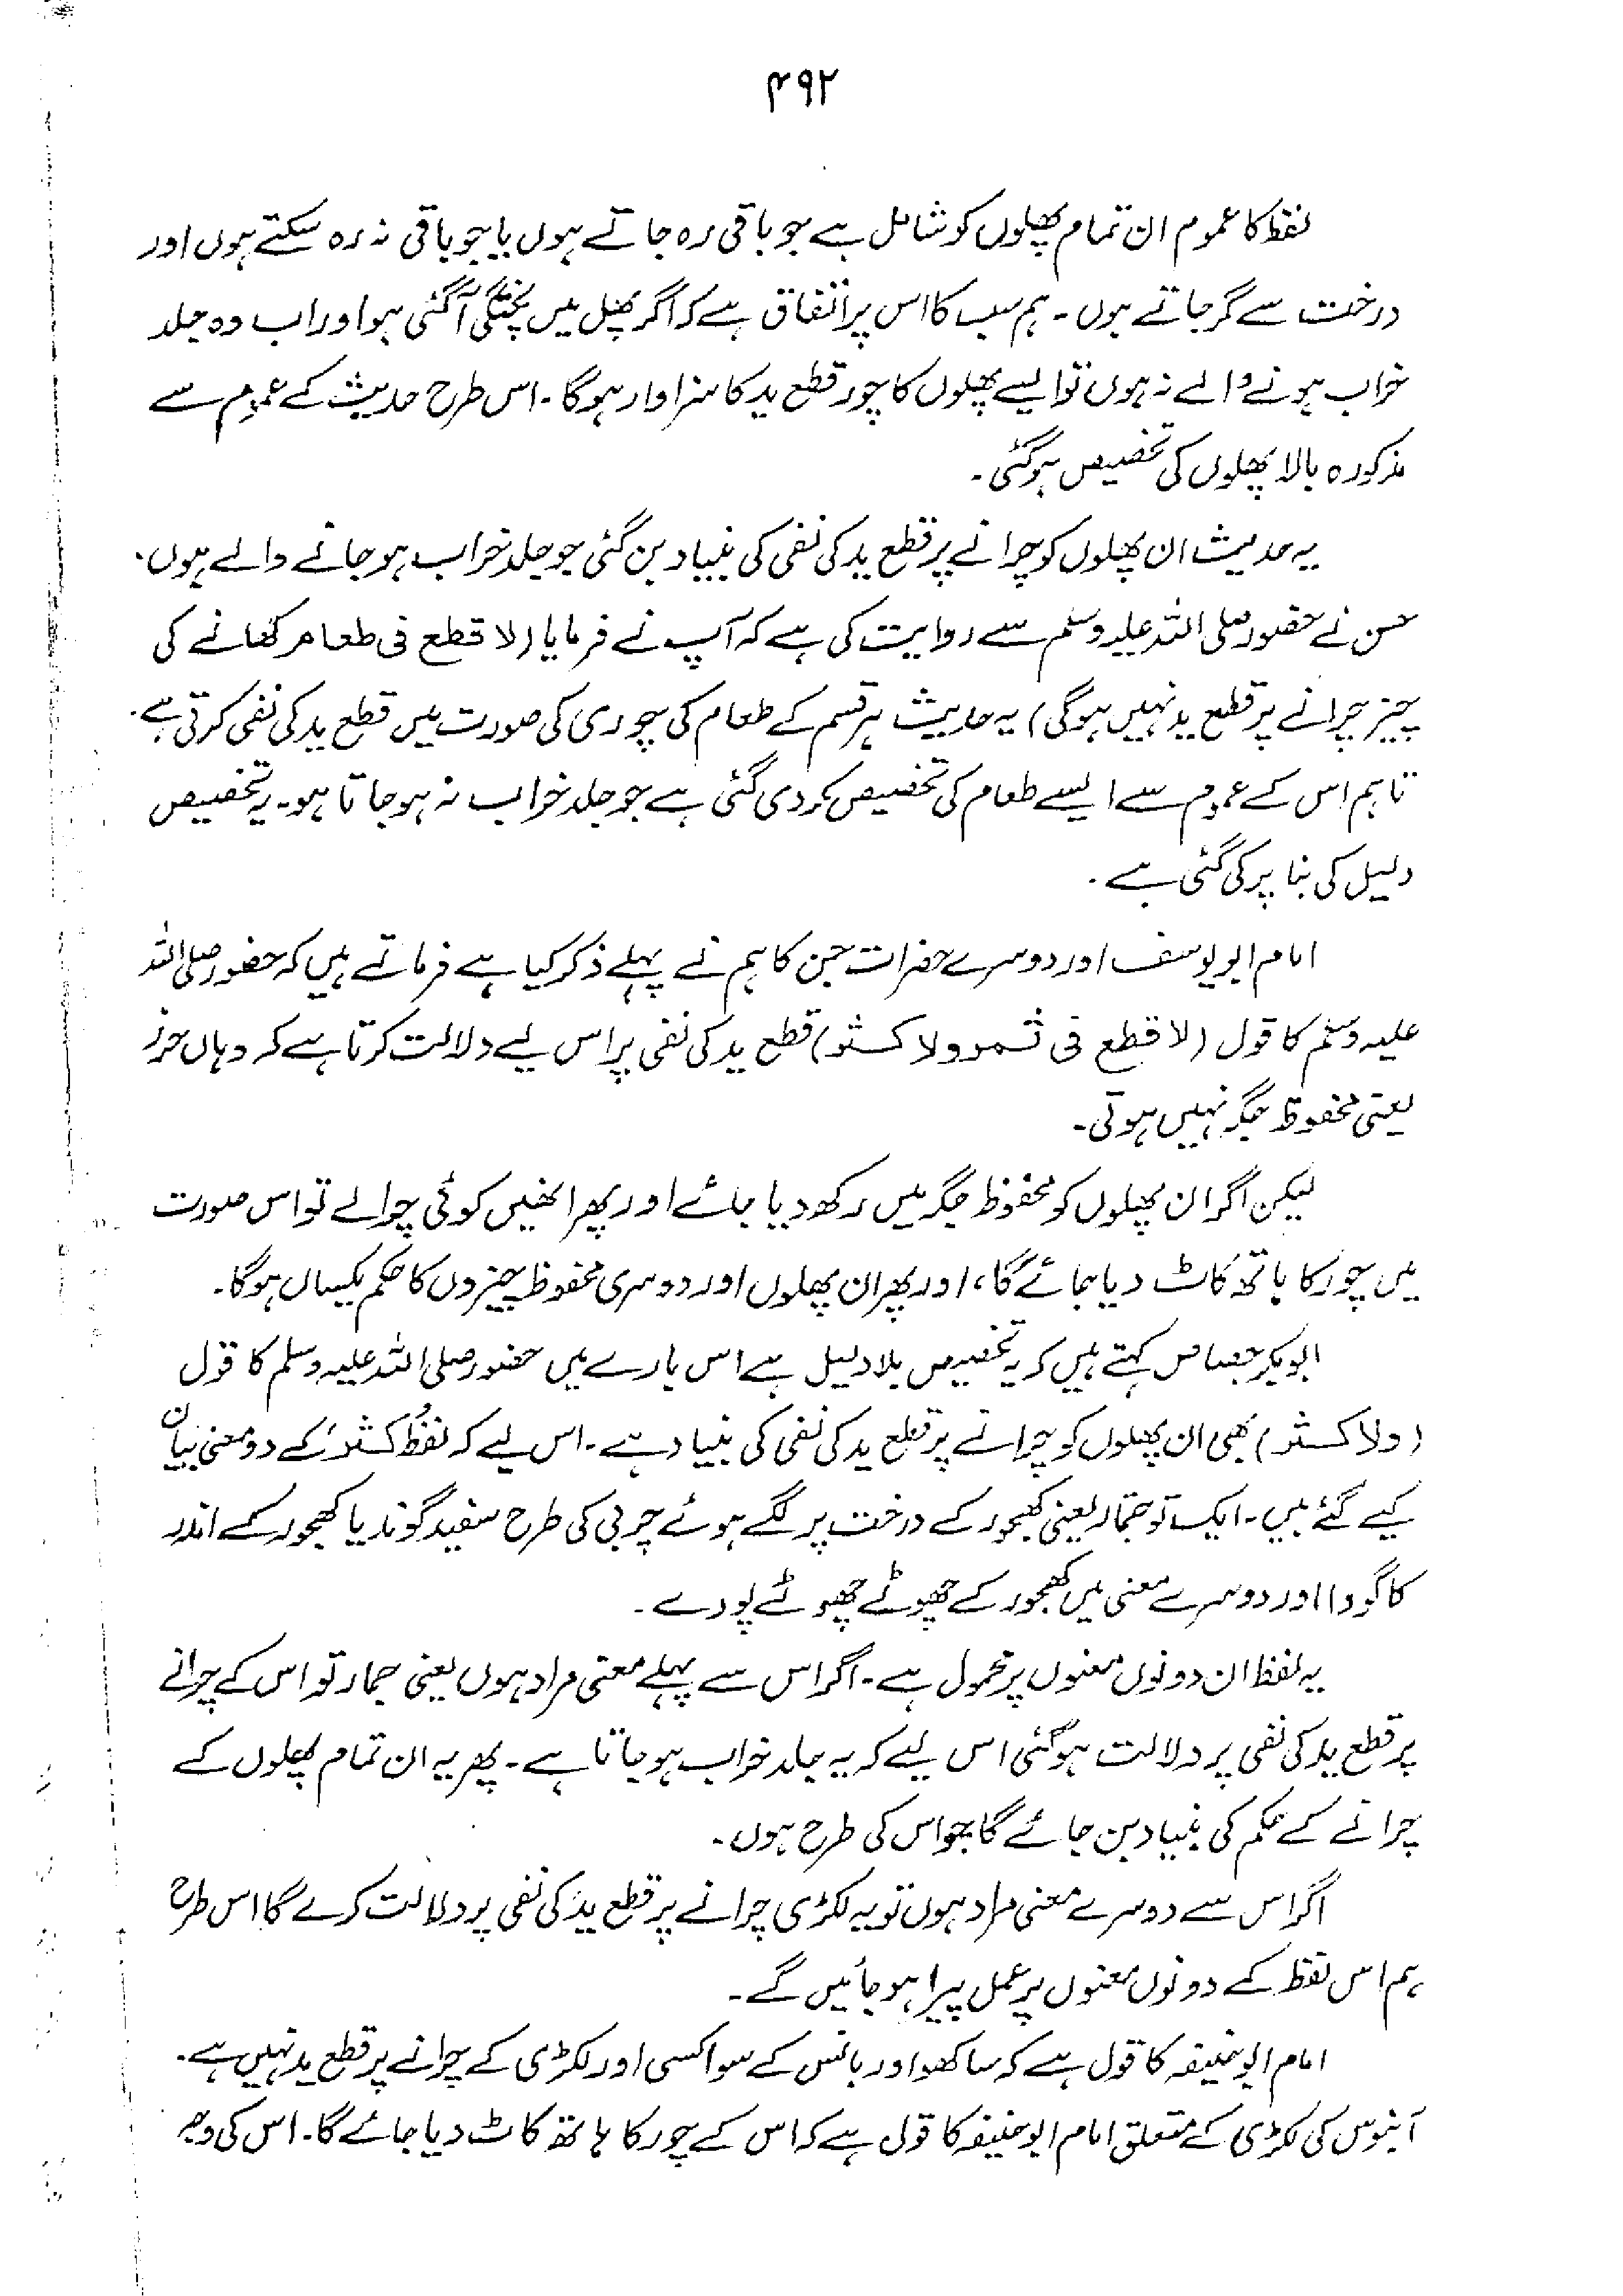 ۴۹۲
لفظ کا عموم ان تمام پھلوں کو شامل ہے جو باقی رہ جاتے ہوں یا جو باقی نہ رہ سکتے ہوں اور
درخت سے گر جاتے ہوں۔ ہم سب کا اس پر اتفاق ہے کہ اگر پھل میں پختگی آگئی ہو اور اب وہ جلد
خراب ہونے والے نہ ہوں تو ایسے پھلوں کا چور قطع ید کا سزاوار ہوگا۔ اس طرح حدیث کے عموم سے
مذکورہ بالا پھلوں کی تخصیص ہوگئی۔
یہ حدیث ان پھلوں کو چرانے پر قطع ید کی نفی کی بنیاد بن گئی جو جلد خراب ہو جانے والے ہوں۔
حسن نے حضور صلی اللہ علیہ وسلم سے روایت کی ہے کہ آپ نے فرمایا (لا قطع فی طعام کھانے کی
چیز چرانے پر قطع ید نہیں ہوگی) یہ حدیث ہر قسم کے طعام کی چوری کی صورت میں قطع ید کی نفی کرتی ہے۔
تاہم اس کے عموم سے ایسے طعام کی تخصیص کر دی گئی ہے جو جلد خراب نہ ہو جاتا ہو۔ یہ تخصیص
دلیل کی بنا پر کی گئی ہے۔
امام ابو یوسف اور دوسرے حضرات جن کا ہم نے پہلے ذکر کیا ہے فرماتے ہیں کہ حضور صلی اللہ
علیہ وسلم کا قول (لا قطع فی ثمر ولا کثر) قطع ید کی نفی پر اس لیے دلالت کرتا ہے کہ وہاں حرز
یعنی محفوظ جگہ نہیں ہوتی۔
لیکن اگر ان پھلوں کو محفوظ جگہ میں رکھ دیا جائے اور پھر انھیں کوئی چرالے تو اس صورت
میں چور کا ہاتھ کاٹ دیا جائے گا، اور پھر ان پھلوں اور دوسری محفوظ چیزوں کا حکم یکساں ہوگا۔
ابوبکر جصاص کہتے ہیں کہ یہ تخصیص بلا دلیل ہے اس بارے میں حضور صلی اللہ علیہ وسلم کا قول
(ولا کثر) بھی ان پھلوں کو چرانے پر قطع ید کی نفی کی بنیاد ہے۔ اس لیے کہ لفظ کثر کے دو معنی بیان
کیے گئے ہیں۔ ایک تو جمّار یعنی کھجور کے درخت پر لگے ہوئے چربی کی طرح سفید گوند یا کھجور کے اندر
کا گودا اور دوسرے معنی ہیں کھجور کے چھوٹے چھوٹے پودے۔
یہ لفظ ان دونوں معنوں پر محمول ہے۔ اگر اس سے پہلے معنی مراد ہوں یعنی جمار تو اس کے چرانے
پر قطع ید کی نفی پر دلالت ہوگئی اس لیے کہ یہ جلد خراب ہو جاتا ہے۔ پھر یہ ان تمام پھلوں کے
چرانے کے حکم کی بنیاد بن جائے گا جو اس کی طرح ہوں۔
اگر اس سے دوسرے معنی مراد ہوں تو یہ لکڑی چرانے پر قطع ید کی نفی پر دلالت کرے گا اس طرح
ہم اس لفظ کے دونوں معنوں پر عمل پیرا ہو جائیں گے۔
امام ابو حنیفہ کا قول ہے کہ ساکھو اور بانس کے سوا کسی اور لکڑی کے چرانے پر قطع ید نہیں ہے۔
آبنوس کی لکڑی کے متعلق امام ابو حنیفہ کا قول ہے کہ اس کے چور کا ہاتھ کاٹ دیا جائے گا۔ اس کی وجہ